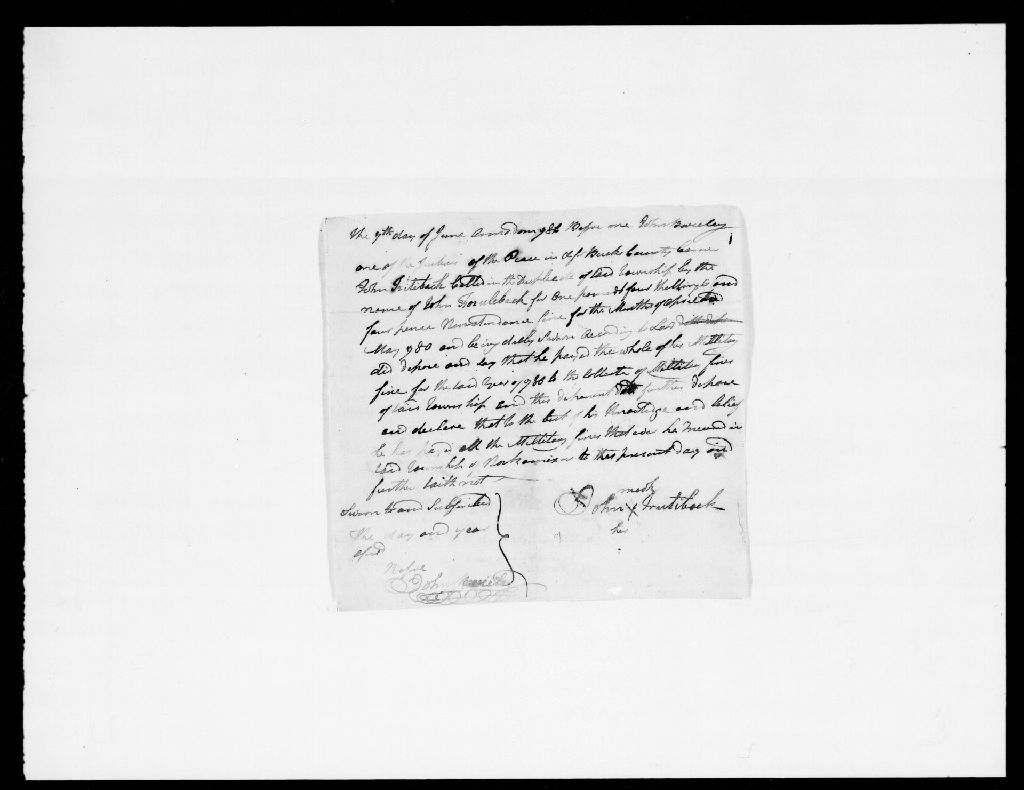 The 7th day of June Annodom 786 Before me John
one of the Justices of the Peace in aff Bucks County Came
John Called in the Duplicate of said Township by the
name of John for One pound four Shillings and
four pence Nonattendance fine for the Months of April and
May 780 and being dully Sworn According to Law
did depose and say that he payed the whole of his Millitia
fine for the said Year of 780 to the Collector of Millitia fines
of said Township and this deponent doth further depose
and declare that to the best of his Knowledge and belief
he has payed all the Millitia fines that ever he Incurred in
said Township of Nockamixon to this present day and
further saith not
Sworn to and Subscribed
the day and year
afsd
Before
John
mark
John X
his